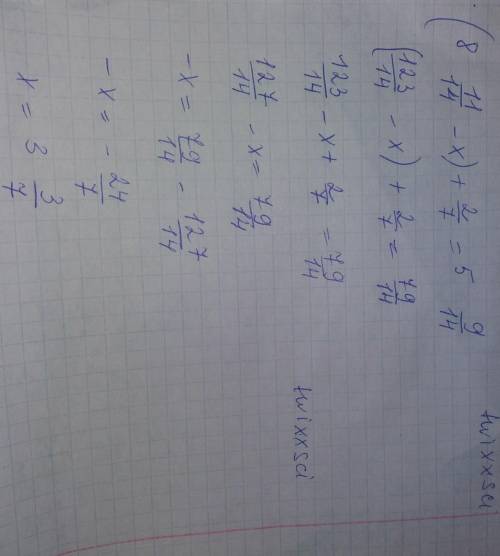 (8 11/14 - x) + 2/7 = 5 9/14
(123/14 - x) + 2/7 = 79/14
123/14 - x + 2/7 = 79/14
127/14 - x = 79/14
-x = 79/14 - 127/14
-x = - 24/7
x = 3 3/7
twixxsci
twixxsci